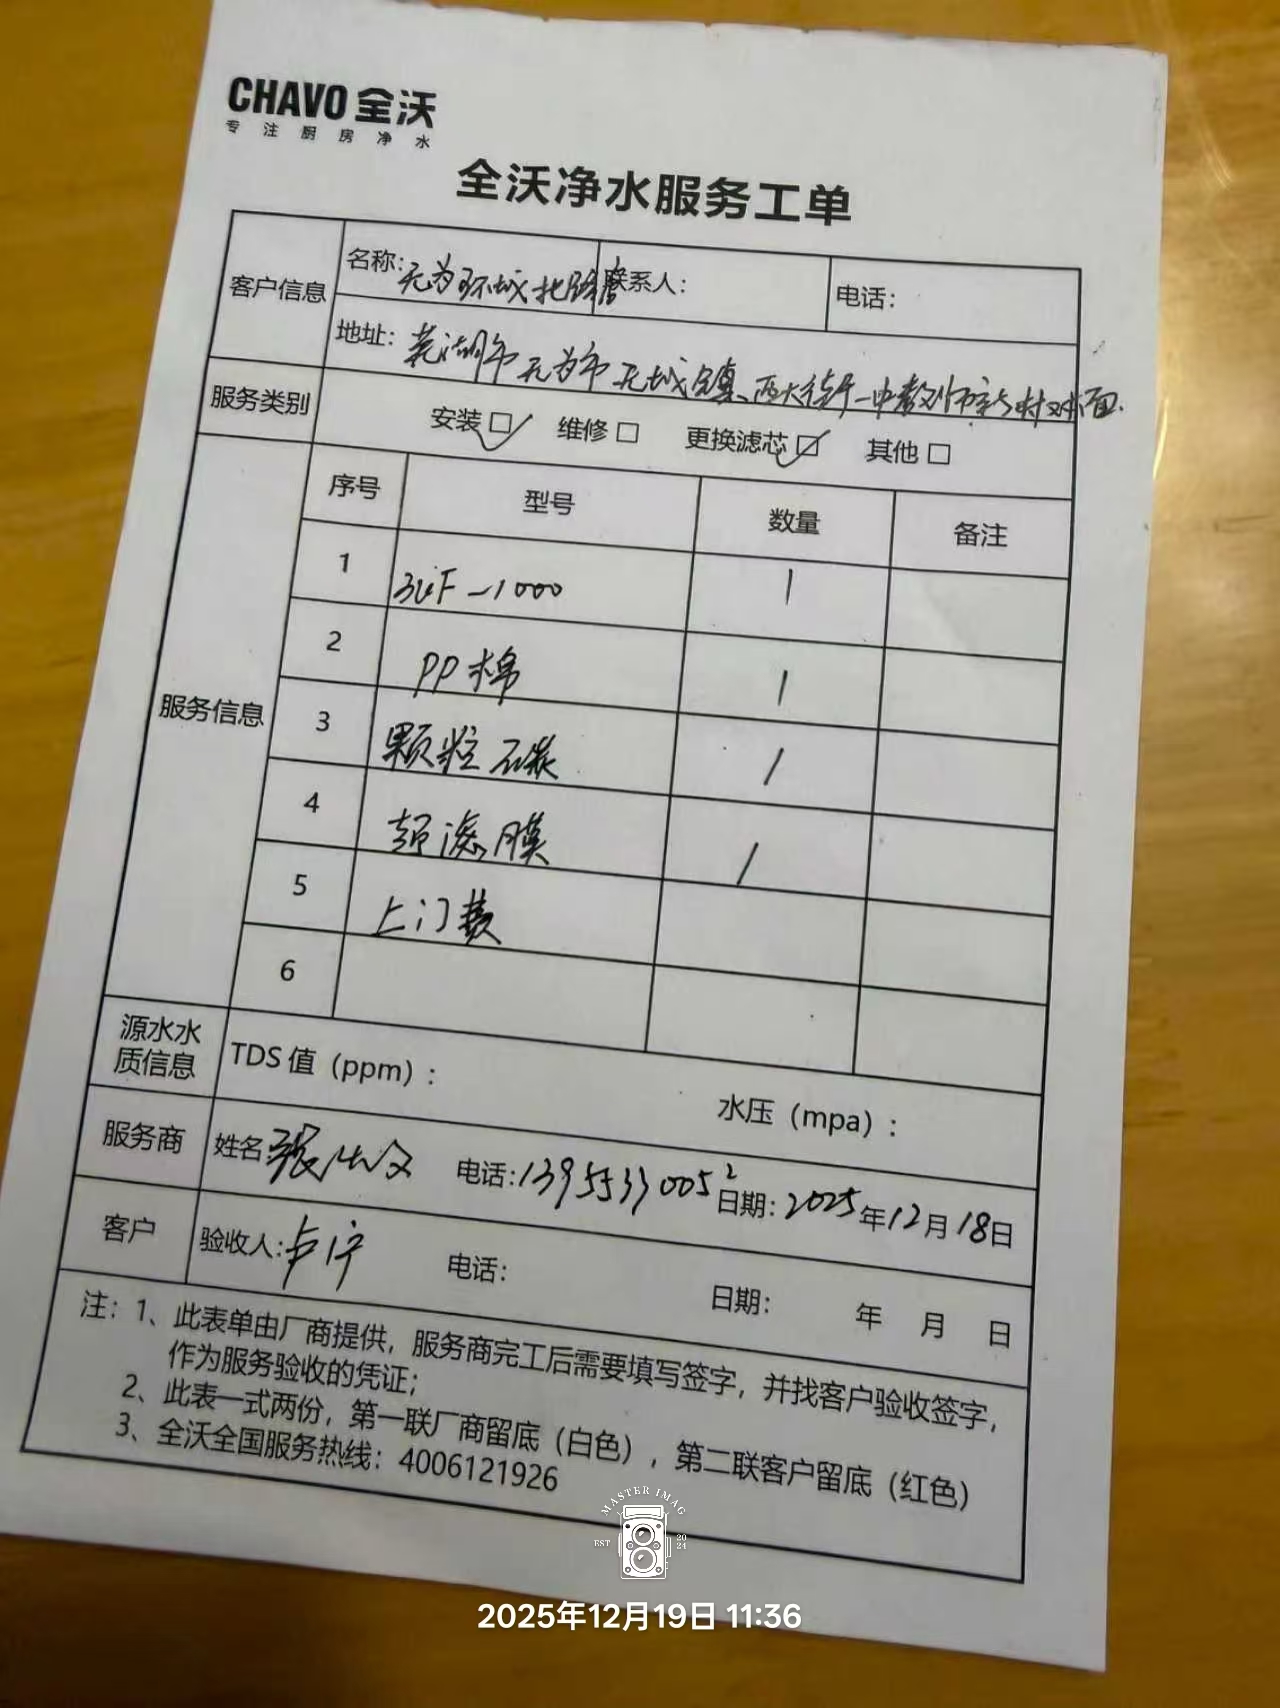 CHAVO 全沃
专注厨房净水
全沃净水服务工单
客户信息
名称: 无为环城北路店 联系人: 电话:
地址: 芜湖市无为市无城镇西大街一中教师新村对面.
服务类别 安装☑ 维修□ 更换滤芯☑ 其他□
服务信息
序号 型号 数量 备注
1 3UF-1000 1
2 PP棉 1
3 颗粒碳 1
4 超滤膜 1
5 上门费
6
源水水质信息 TDS 值（ppm）: 水压（mpa）:
服务商 姓名 张 文 电话: 13955330052 日期: 2025年12月18日
客户 验收人: 卢宁 电话: 日期: 年 月 日
注: 1、此表单由厂商提供，服务商完工后需要填写签字，并找客户验收签字，
作为服务验收的凭证；
2、此表一式两份，第一联厂商留底（白色），第二联客户留底（红色）
3、全沃全国服务热线：4006121926
MASTER IMAG
EST 2024
2025年12月19日 11:36